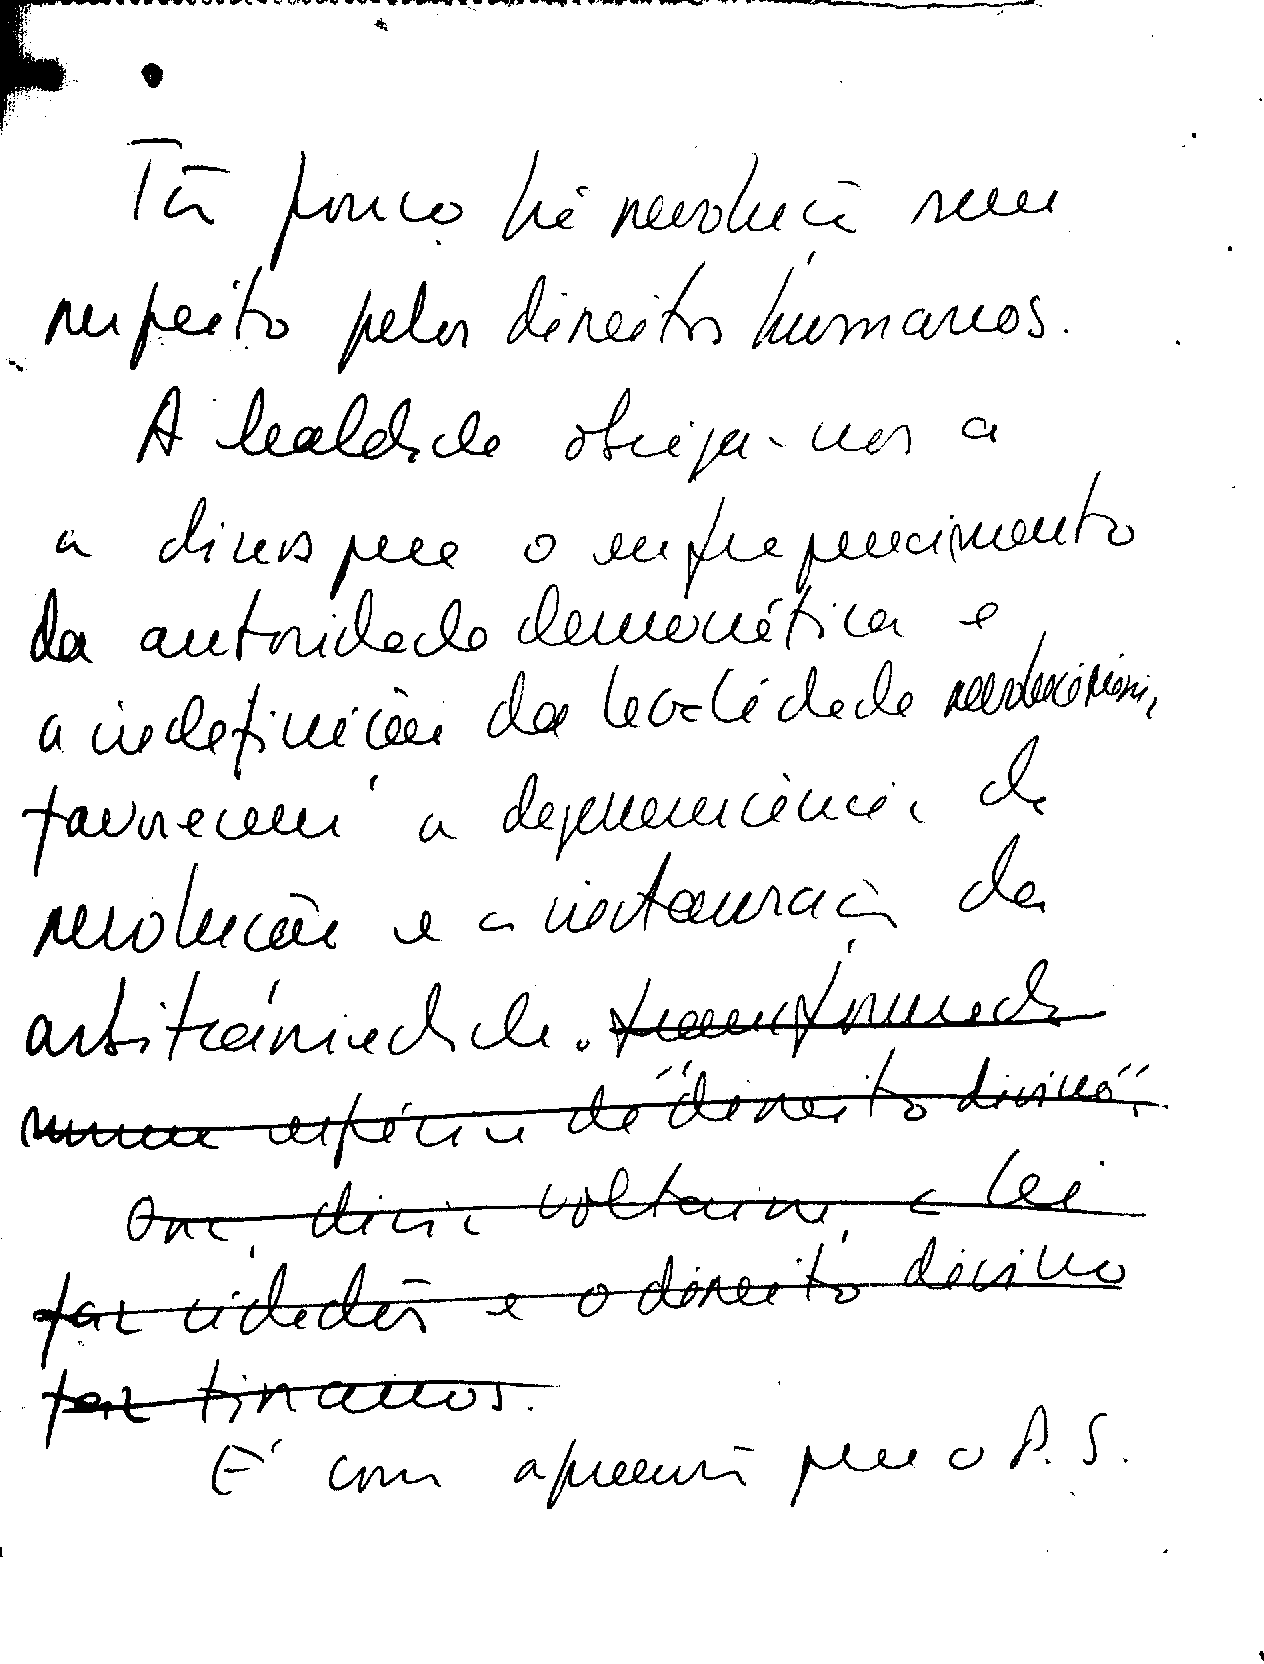 Tão pouco há revolução sem
respeito pelos direitos humanos.
A lealdade obriga-nos a
a dizer que o enfraquecimento
da autoridade democrática e
a indefinição da legalidade revolucionária,
favorecem a degenerescência da
revolução e a instauração da
arbitrariedade. transformada
numa espécie de "direito divino".
Ora, dizia Voltaire, a lei
faz cidadãos e o direito divino
faz tiranos.
É com apreensão que o P.S.